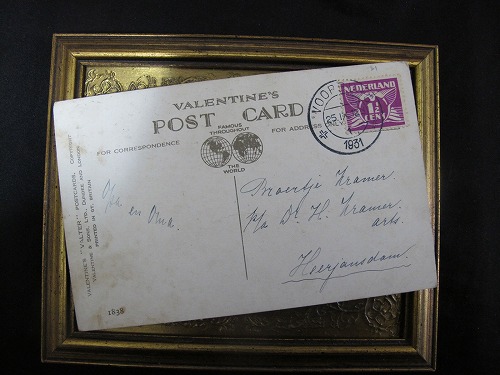 VALENTINE'S
POST CARD
FAMOUS
THROUGHOUT
THE
WORLD
FOR CORRESPONDENCE
FOR ADDRESS
NEDERLAND
1½
CENT
1931
Opa en Oma.
Broertje Kramer
p/a Dr. H. Kramer.
arts.
Heerjansdam.
VALENTINE'S "VALTER" POSTCARDS, COPYRIGHT
VALENTINE & SONS, LTD., DUNDEE AND LONDON
PRINTED IN GT. BRITAIN
1838